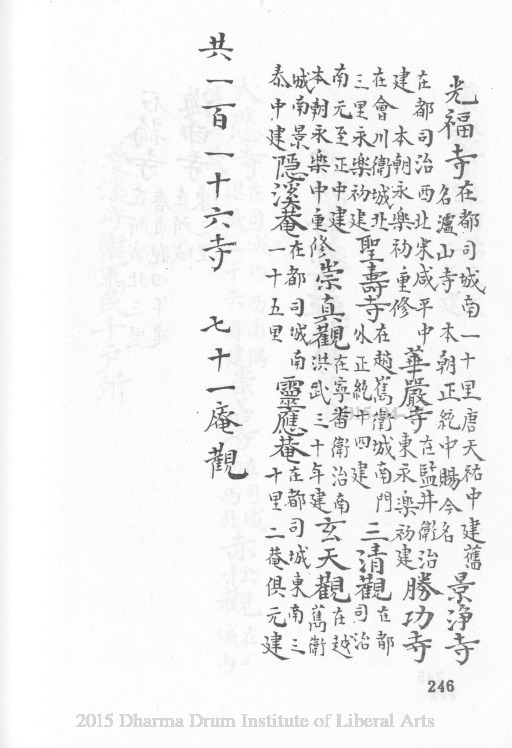 光福寺在都司城南一十里唐天祐中建舊名瀘山寺本朝正統中賜今名景淨寺
在都司治西北宋咸平中建 本朝永樂初重修華嚴寺在監井衛治東永樂初建勝功寺
在會川衛城北三里永樂初建聖壽寺在越嶲衛城南門外正統十四建三清觀在都司治
南元至正中建本朝永樂中重修崇真觀在寧番衛治南洪武三十年建玄天觀在越嶲衛
城南景泰中建隱溪菴在都司城南一十五里靈應菴在都司城東南三十里二菴俱元建
共一百一十六寺 七十一庵觀
246
2015 Dharma Drum Institute of Liberal Arts